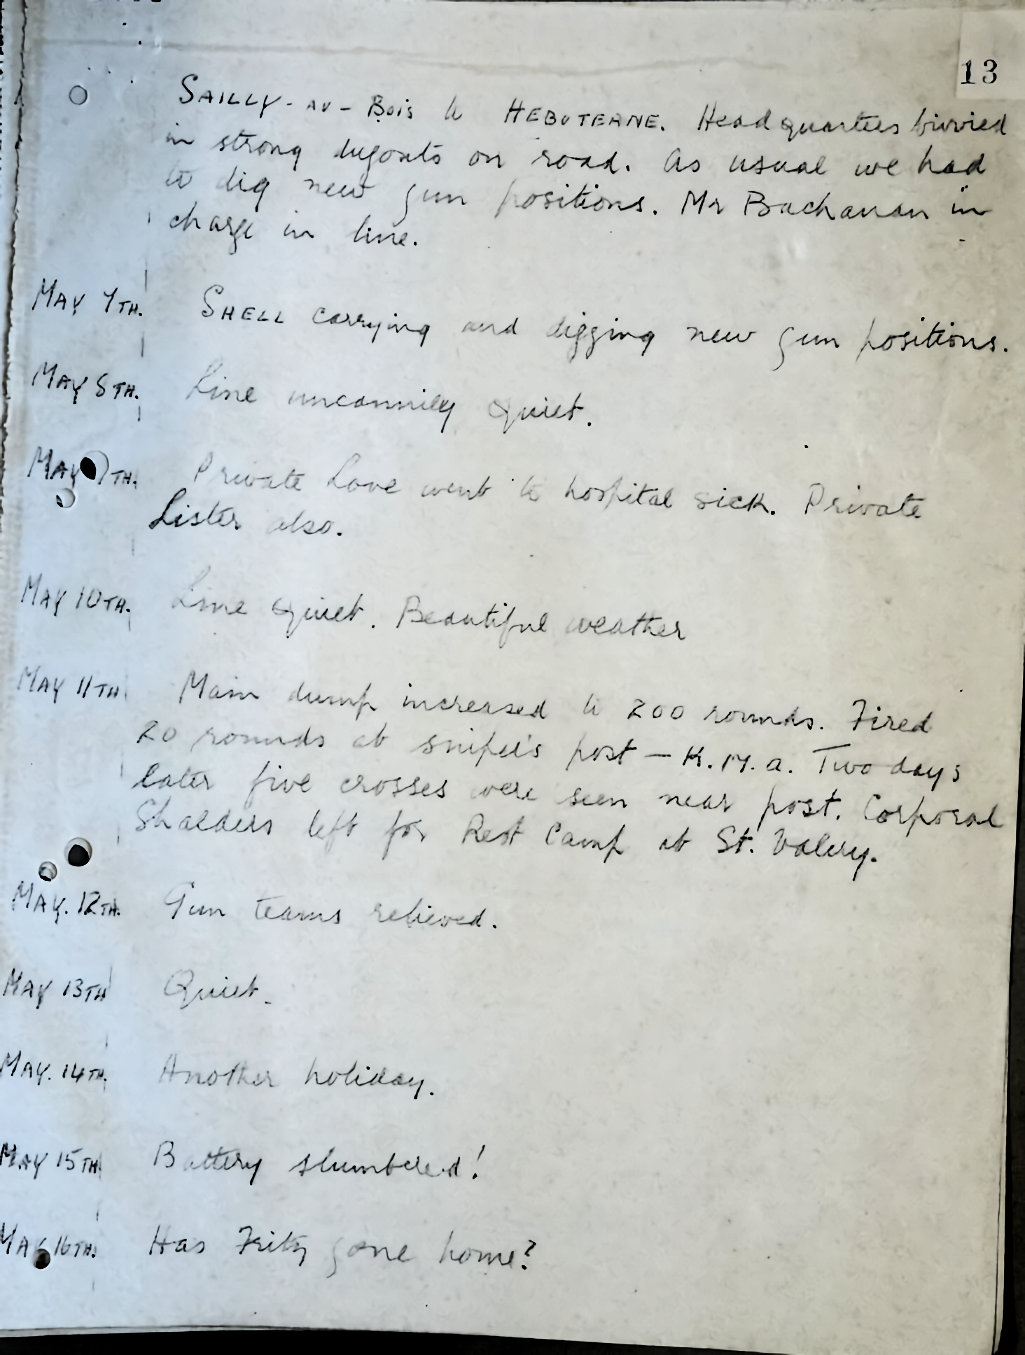 13
SAILLY-AU-Bois to HEBUTERNE. Headquarters bivvied
in strong dugouts on road. As usual we had
to dig new gun positions. Mr Buchanan in
charge in line.
MAY 7TH. SHELL carrying and digging new gun positions.
MAY 8TH. Line uncannily quiet.
MAY 9TH. Private Love went to hospital sick. Private
Lister also.
MAY 10TH. Line quiet. Beautiful weather
MAY 11TH Main dump increased to 200 rounds. Fired
20 rounds at sniper's post - K.17.a. Two days
later five crosses were seen near post. Corporal
Shalders left for Rest Camp at St. Valery.
MAY. 12TH. Gun teams relieved.
MAY 13TH Quiet.
MAY. 14TH. Another holiday.
MAY 15TH Battery slumbered!
MAY 16TH. Has Fritz gone home?